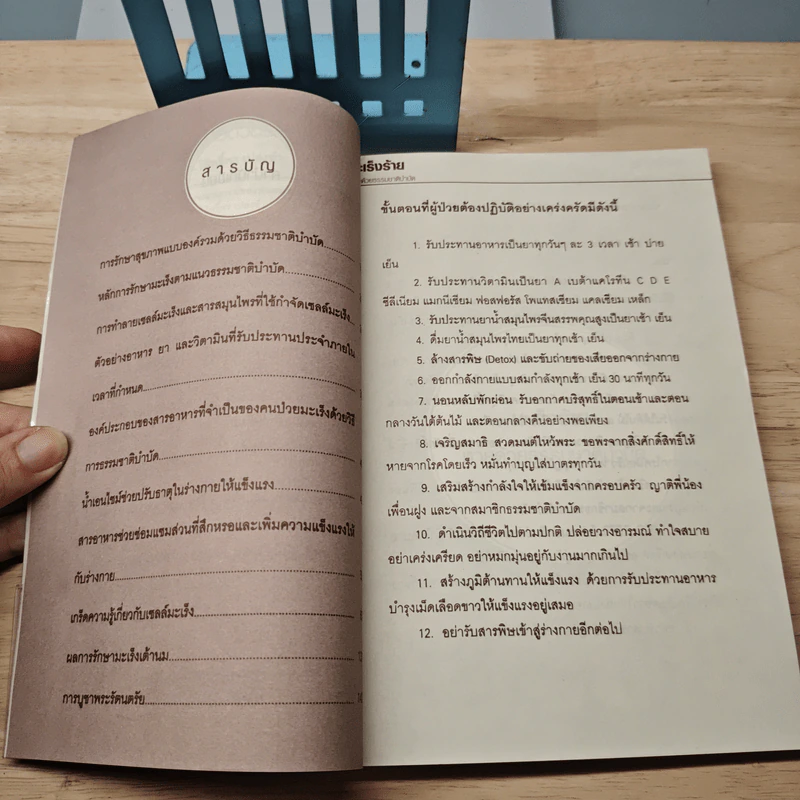 สารบัญ
การรักษาสุขภาพแบบองค์รวมด้วยวิธีธรรมชาติบำบัด
หลักการรักษามะเร็งตามแนวธรรมชาติบำบัด
การทำลายเซลล์มะเร็งและสารสมุนไพรที่ใช้กำจัดเซลล์มะเร็ง
ตัวอย่างอาหาร ยา และวิตามินที่รับประทานประจำภายใน
เวลาที่กำหนด
องค์ประกอบของสารอาหารที่จำเป็นของคนป่วยมะเร็งด้วยวิธี
การธรรมชาติบำบัด
น้ำเอนไซม์ช่วยปรับธาตุในร่างกายให้แข็งแรง
สารอาหารช่วยซ่อมแซมส่วนที่สึกหรอและเพิ่มความแข็งแรงให้
กับร่างกาย
เกร็ดความรู้เกี่ยวกับเซลล์มะเร็ง
ผลการรักษามะเร็งเต้านม
การบูชาพระรัตนตรัย
ะเร็งร้าย
ด้วยธรรมชาติบำบัด
ขั้นตอนที่ผู้ป่วยต้องปฏิบัติอย่างเคร่งครัดมีดังนี้
1. รับประทานอาหารเป็นยาทุกวันๆ ละ 3 เวลา เช้า บ่าย
เย็น
2. รับประทานวิตามินเป็นยา A เบต้าแคโรทีน C D E
ซีลีเนียม แมกนีเซียม ฟอสฟอรัส โพแทสเซียม แคลเซียม เหล็ก
3. รับประทานยาน้ำสมุนไพรจีนสรรพคุณสูงเป็นยาเช้า เย็น
4. ดื่มยาน้ำสมุนไพรไทยเป็นยาทุกเช้า เย็น
5. ล้างสารพิษ (Detox) และขับถ่ายของเสียออกจากร่างกาย
6. ออกกำลังกายแบบสมกำลังทุกเช้า เย็น 30 นาทีทุกวัน
7. นอนหลับพักผ่อน รับอากาศบริสุทธิ์ในตอนเช้าและตอน
กลางวันใต้ต้นไม้ และตอนกลางคืนอย่างพอเพียง
8. เจริญสมาธิ สวดมนต์ไหว้พระ ขอพรจากสิ่งศักดิ์สิทธิ์ให้
หายจากโรคโดยเร็ว หมั่นทำบุญใส่บาตรทุกวัน
9. เสริมสร้างกำลังใจให้เข้มแข็งจากครอบครัว ญาติพี่น้อง
เพื่อนฝูง และจากสมาชิกธรรมชาติบำบัด
10. ดำเนินวิถีชีวิตไปตามปกติ ปล่อยวางอารมณ์ ทำใจสบาย
อย่าเคร่งเครียด อย่าหมกมุ่นอยู่กับงานมากเกินไป
11. สร้างภูมิต้านทานให้แข็งแรง ด้วยการรับประทานอาหาร
บำรุงเม็ดเลือดขาวให้แข็งแรงอยู่เสมอ
12. อย่ารับสารพิษเข้าสู่ร่างกายอีกต่อไป